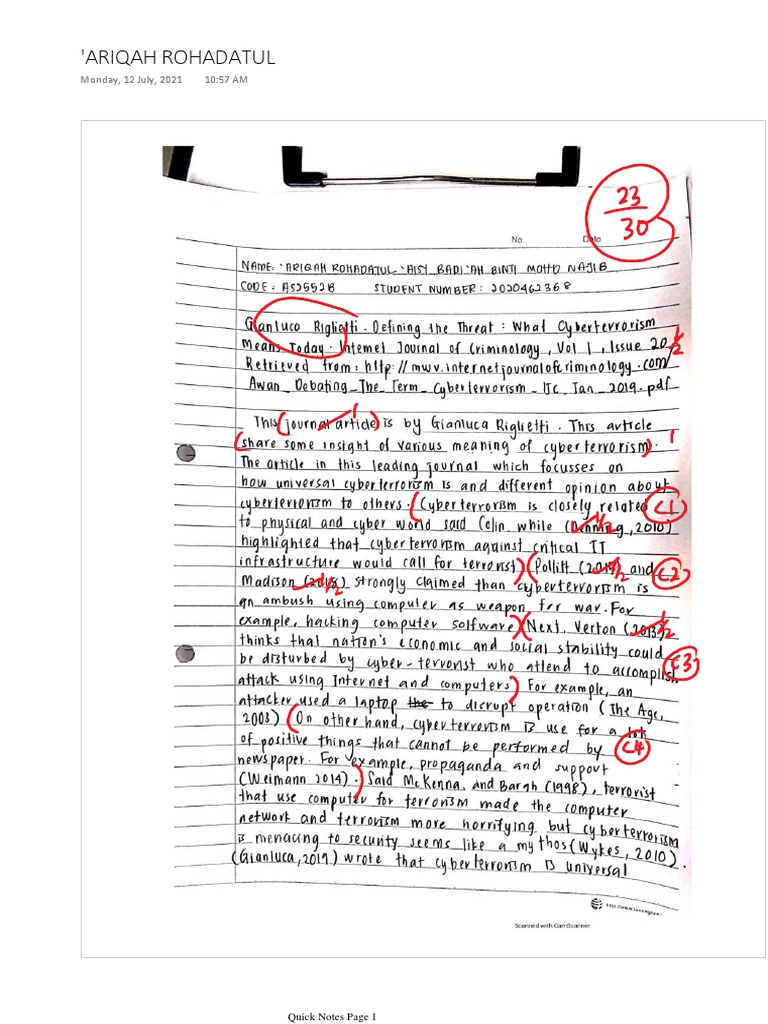 'ARIQAH ROHADATUL
Monday, 12 July, 2021 10:57 AM
23
30
No. Date
NAME: 'ARIQAH ROHADATUL 'AISY BADI'AH BINTI MOHD NAJIB
CODE: AS2552B STUDENT NUMBER: 2020462368
Gianluco Riglietti. Defining the Threat: What Cyberterrorism
Means Today. Internet Journal of Criminology, Vol 1, Issue 20 1/2
Retrieved from: http://www.internetjournalofcriminology.com/
Awan_Debating_The_Term_Cyberterrorism_IJC_Jan_2019.pdf
This (journal article) is by Gianluca Riglietti. This article 1
(share some insight of various meaning of cyberterrorism). 1
The article in this leading journal which focusses on
how universal cyberterrorism is and different opinion about
cyberterrorism to others. (Cyberterrorism is closely related C1
to physical and cyber world said Colin while (Denning, 2010) 1/2
highlighted that cyberterrorism against critical IT
infrastructure would call for terrorist) (Pollitt (2019) and 1/2 C2
Madison (2018) strongly claimed than cyberterrorism is 1/2
an ambush using computer as weapon for war. For
example, hacking computer software) (Next, Verton (2013) 1/2
thinks that nation's economic and social stability could
be disturbed by cyber-terrorist who attend to accomplish C3
attack using Internet and computers) For example, an
attacker used a laptop the to disrupt operation (The Age,
2003) (On other hand, cyberterrorism is use for a lot
of positive things that cannot be performed by C4
newspaper. For example, propaganda and support
(Weimann 2014).) Said McKenna and Bargh (1998), terrorist
that use computer for terrorism made the computer
network and terrorism more horrifying but cyberterrorism
is menacing to security seems like a mythos (Wykes, 2010).
(Gianluca, 2019) wrote that cyberterrorism is universal
Scanned with CamScanner
Quick Notes Page 1